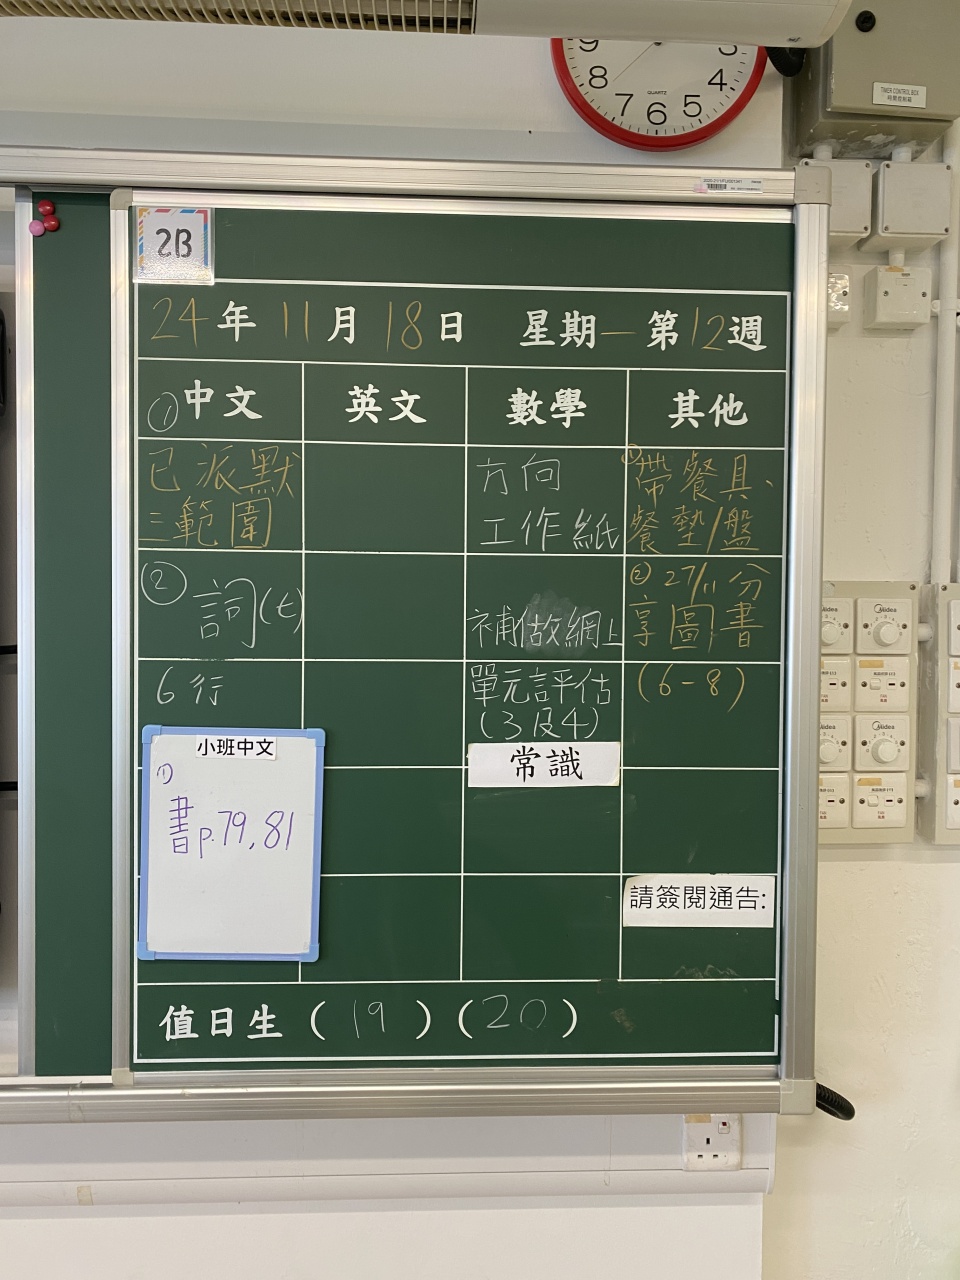 9
3
8
4
QUARTZ
7
6
5
TIMER CONTROL BOX
時間控制箱
2B
24年11月18日 星期一第12週
①中文
英文
數學
其他
已派默
三範圍
②詞(七)
6行
小班中文
①
書p.79,81
方向
工作紙
補做網上
單元評估
(3及4)
常識
①帶餐具、
餐墊/盤
②27/11分
享圖書
(6-8)
請簽閱通告:
值日生(19)(20)
Midea
Midea
Midea